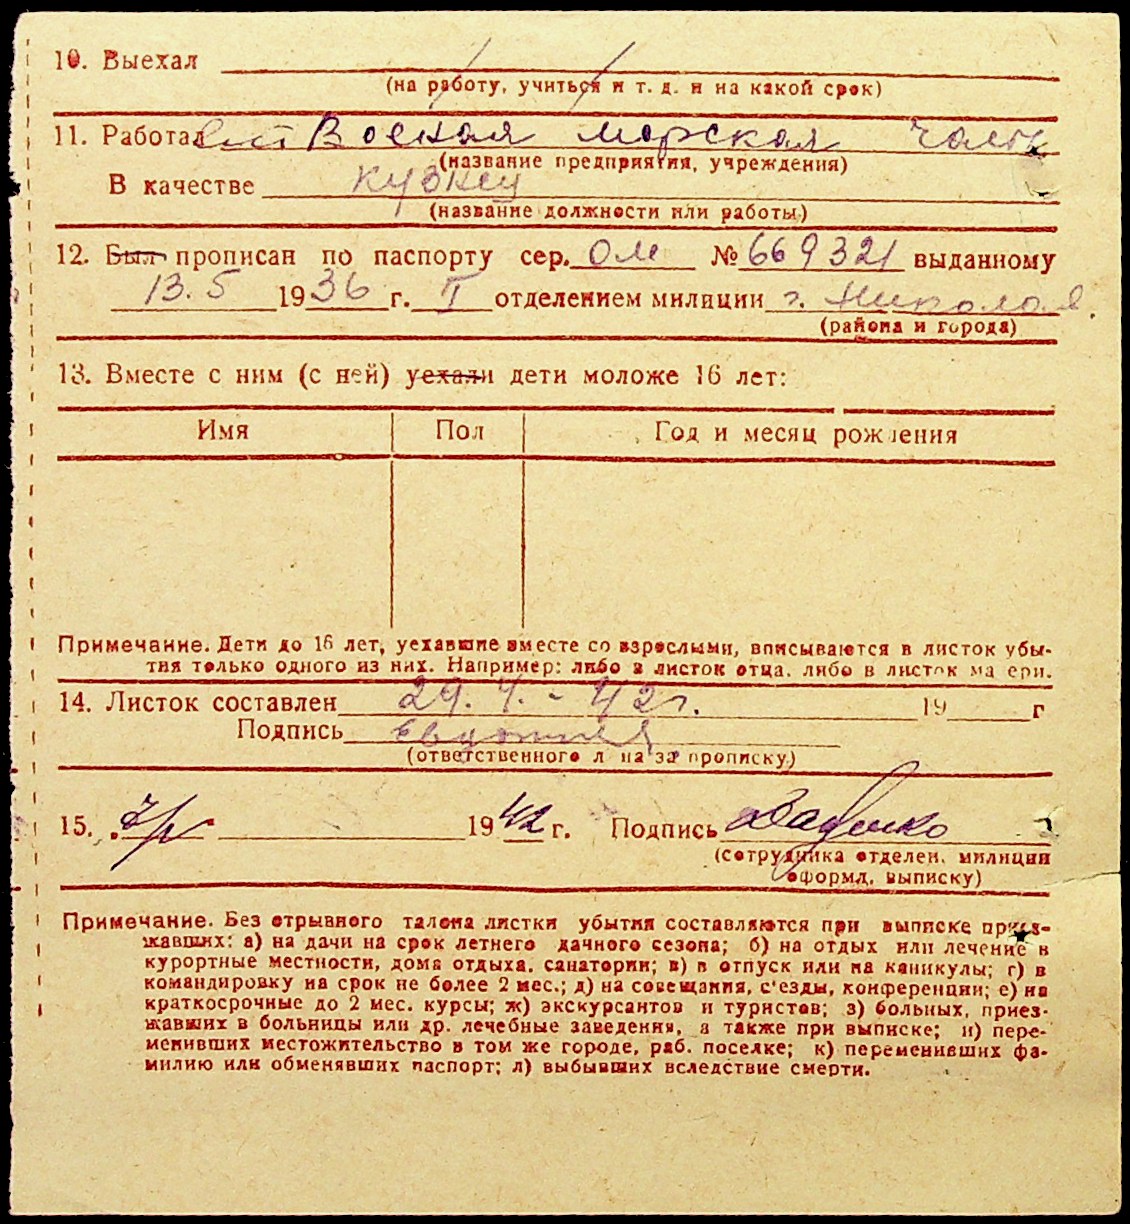 10. Выехал
(на работу, учиться и т. д. и на какой срок)
11. Работает Военая морская часть
(название предприятия, учреждения)
В качестве кузнец
(название должности или работы)
12. Был прописан по паспорту сер. ОМ № 669321 выданному
13.5 1936 г. II отделением милиции г. Николаев.
(района и города)
13. Вместе с ним (с ней) уехали дети моложе 16 лет:
Имя Пол Год и месяц рождения
Примечание. Дети до 16 лет, уехавшие вместе со взрослыми, вписываются в листок убы-
тия только одного из них. Например: либо в листок отца, либо в листок ма ери.
14. Листок составлен 29.4.-42г. 19 г
Подпись
(ответственного л на за прописку)
15. 1942 г. Подпись
(сотрудника отделен. милиции
оформл. выписку)
Примечание. Без отрывного талона листки убытия составляются при выписке приез-
жавших: а) на дачи на срок летнего дачного сезона; б) на отдых или лечение в
курортные местности, дома отдыха, санатории; в) в отпуск или на каникулы; г) в
командировку на срок не более 2 мес.; д) на совещания, с'езды, конференции; е) на
краткосрочные до 2 мес. курсы; ж) экскурсантов и туристов; з) больных, приез-
жавших в больницы или др. лечебные заведения, а также при выписке; и) пере-
менивших местожительство в том же городе, раб. поселке; к) переменивших фа-
милию или обменявших паспорт; л) выбывших вследствие смерти.